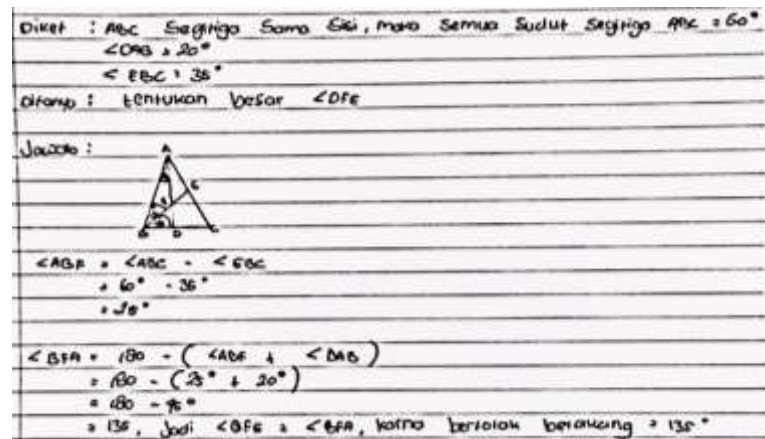 Diket : ABC Segitiga Sama Sisi, maka Semua Sudut Segitiga ABC = 60°
<DAB = 20°
< EBC = 35°
Ditanya : tentukan besar <DFE
Jawab :
A
E
B D C
<ABF = <ABC - <EBC
= 60° - 35°
= 25°
< BFA = 180 - ( <ABF + < DAB )
= 180 - ( 25° + 20° )
= 180 - 45°
= 135, Jadi <DFE = <BFA, karna bertolak belakang = 135°